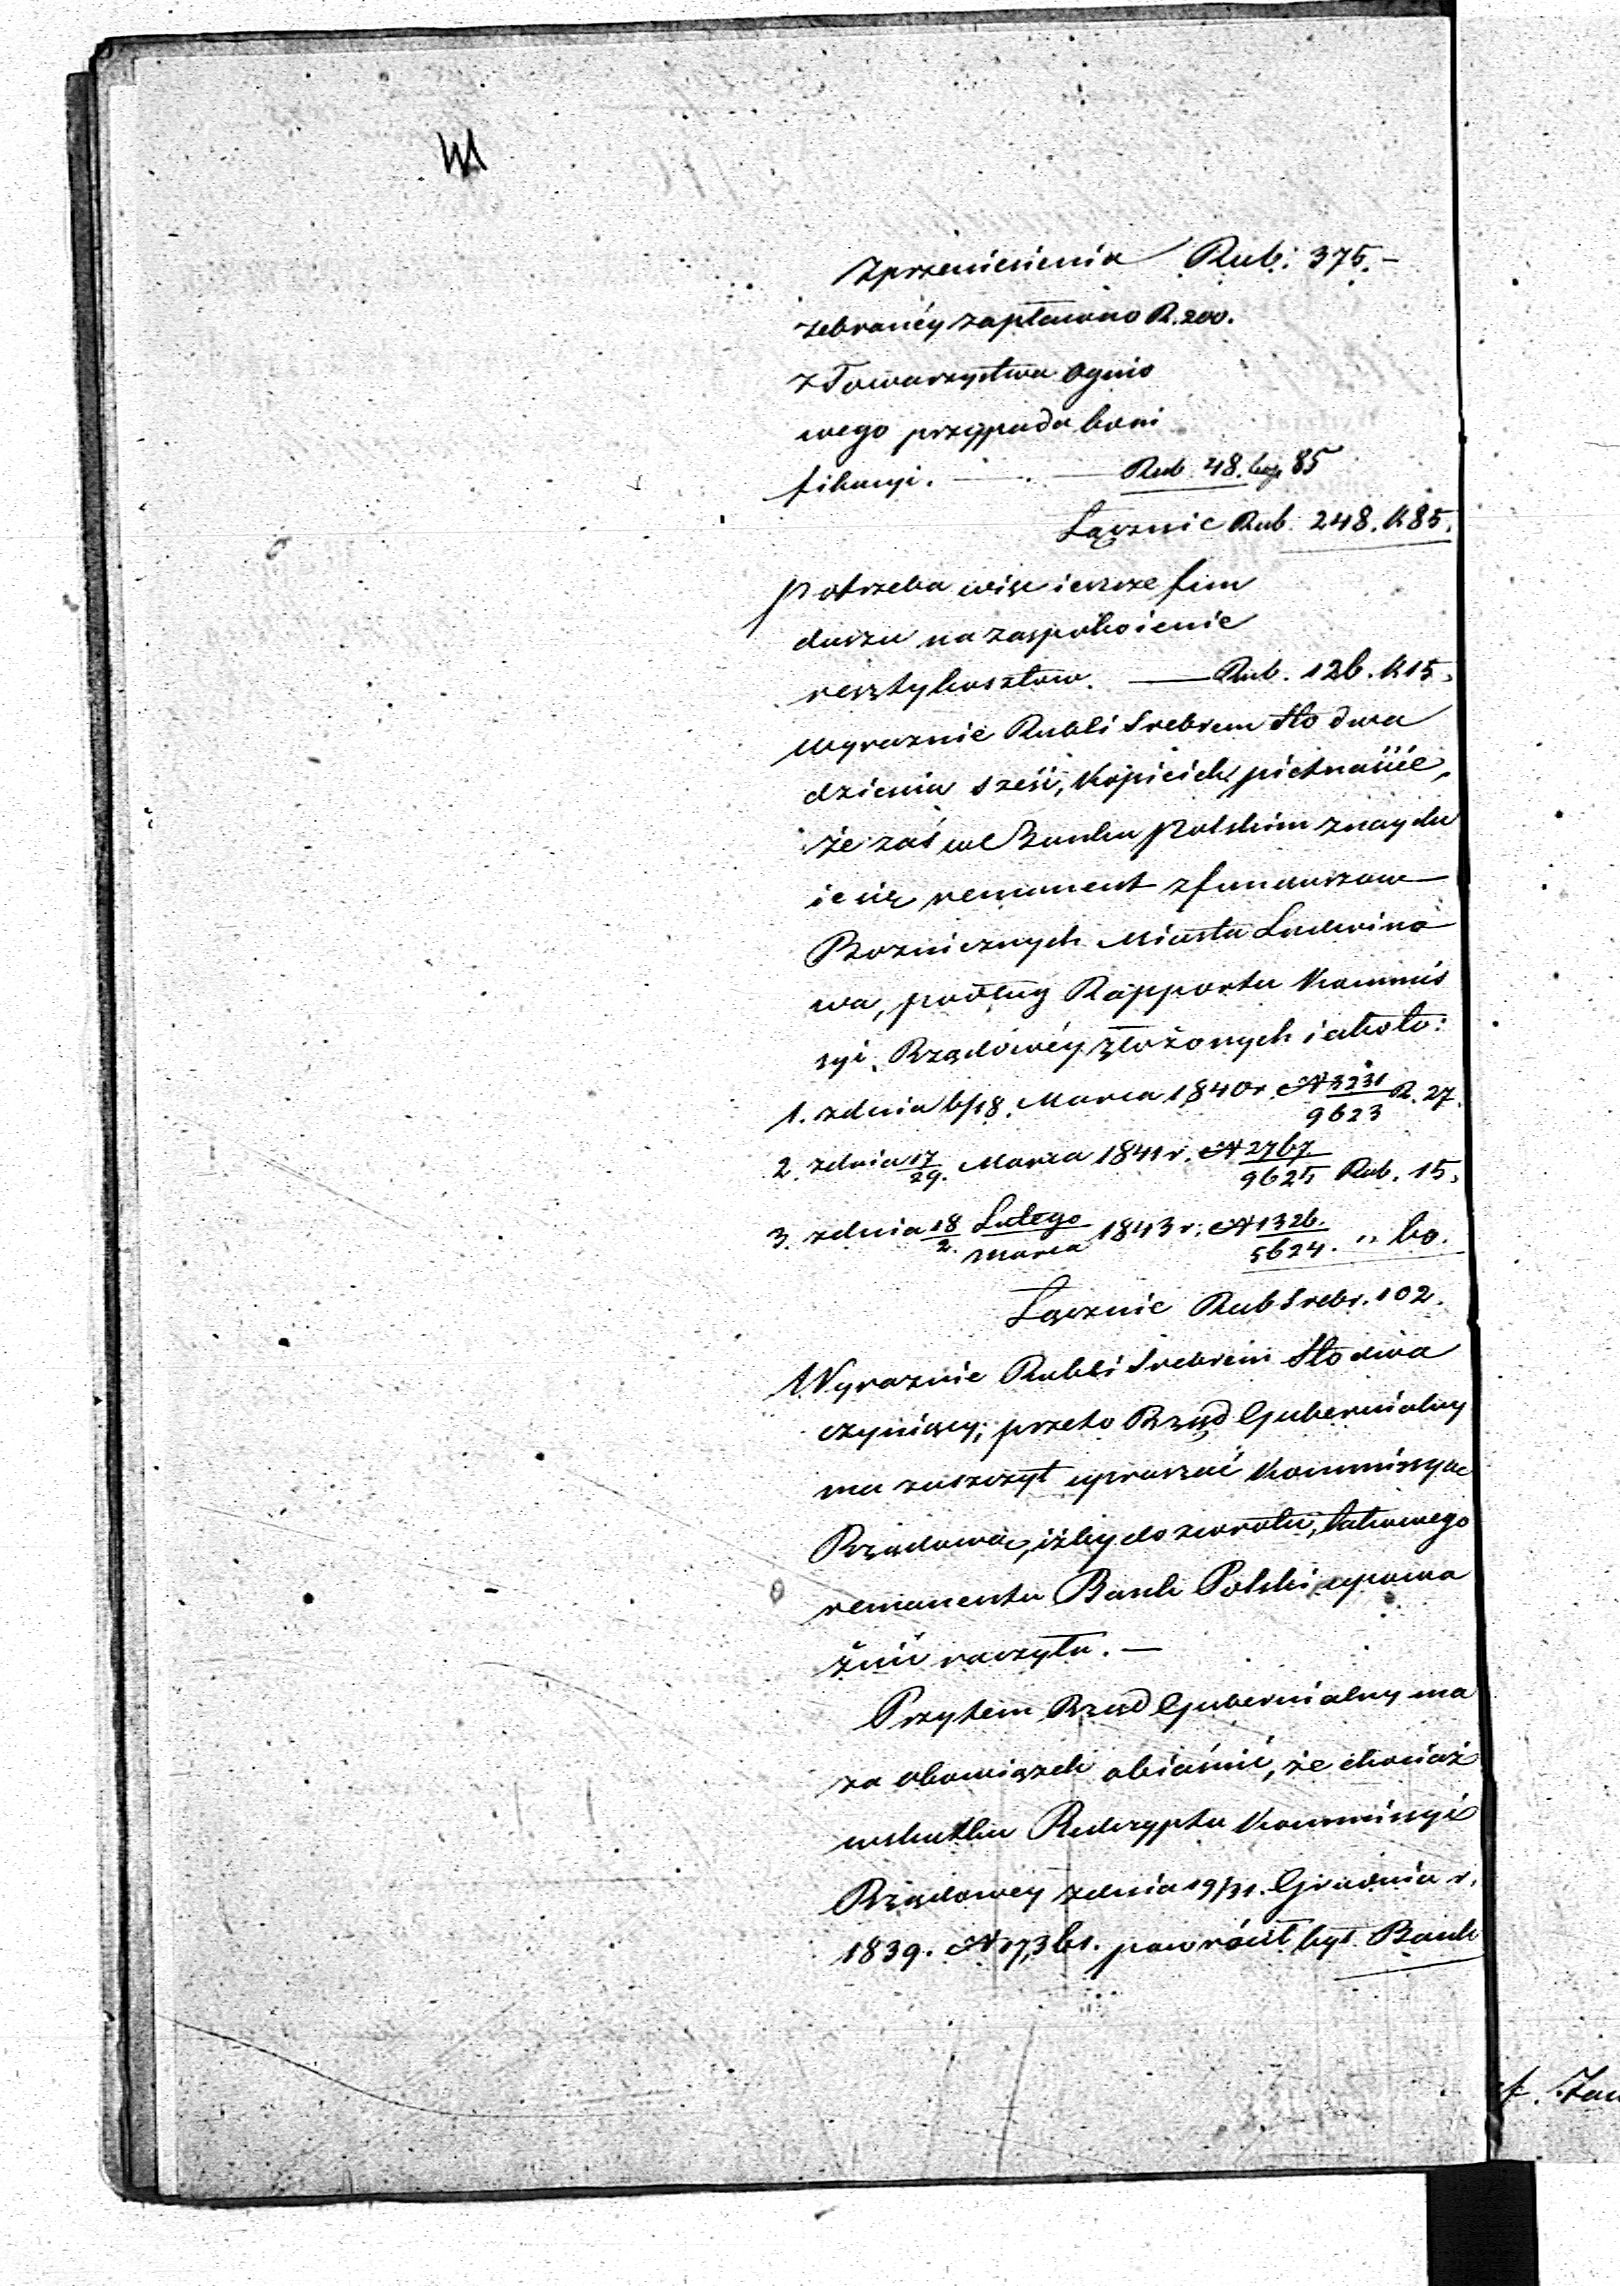 Zprzeniesienia Rub: 375.-
zebranéy zapłacono R. 200.
z Towarzystwa Ognio
wego przypada boni
fikacyi. — . — Rub. 48. kop 85
Łącznie Rub. 248. K 85.
potrzeba więc ieszcze fun
duszu na zaspokoienie
reszty kosztow. — Rub. 126. K 15.
wyraznie Rubli Srebrem Sto dwa
dzieścia sześć, Kopieiek pietnaście,
że zaś we Banku Polskim znaydu
ie się remanent z funduszow
Bozniczych Miasta Ludwino
wa, podług Rapportu Kommis
syi Rządowéy złożonych iakoto:
1. z dnia 6/18. Marca 1840 r. N 3231/9623 R. 27.
2. z dnia 17/29. Marca 1841 r. N 2767/9625 Rub. 15.
3. z dnia 18 Lutego/2. Marca 1843 r. N 1326./5624. " 60.
Łącznie Rub Srebr. 102.
Wyraznie Rubli Srebrem Sto dwa
czyniący; przeto Rząd Gubernialny
ma zaszczyt upraszać Kommissyą
Rządową, iżby do zwrotu, takowego
remanentu Bank Polski upowa
żnić raczyła. —
Przytem Rząd Gubernialny ma
za obowiązek obiaśnić, że chociaż
wskutku Reskryptu Kommissyi
Rządowey z dnia 19/31. Grudnia r.
1839. N 17,361. powrócił był Bank
f. Zaw